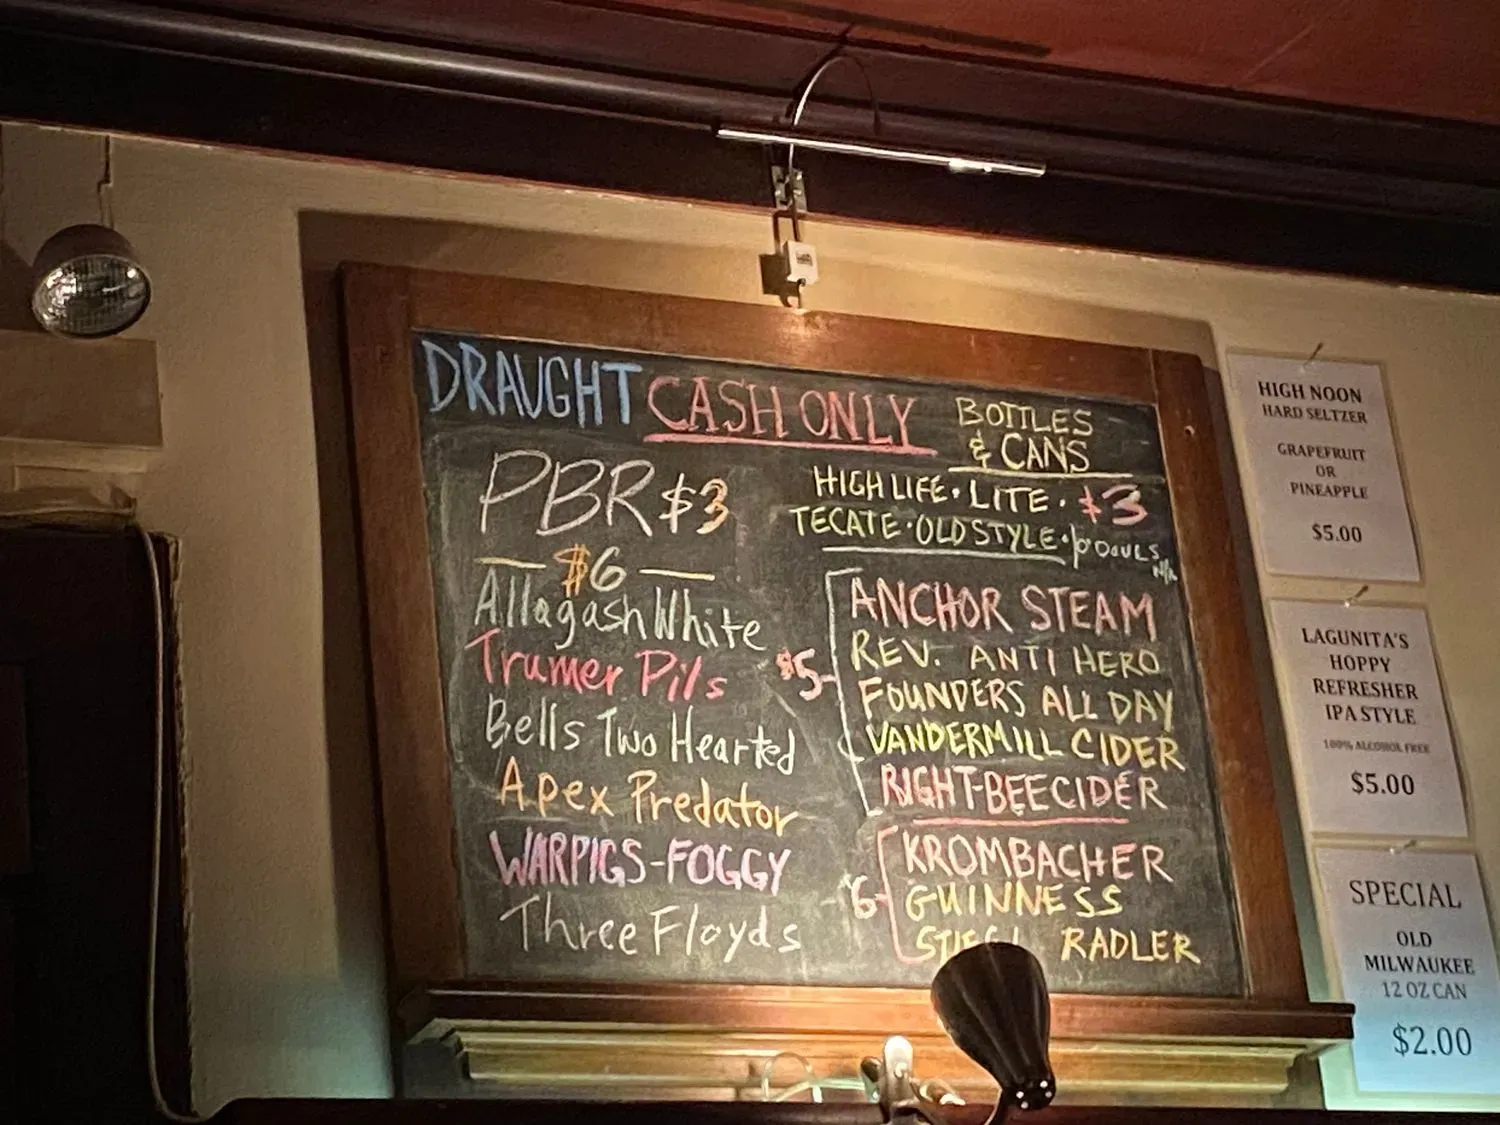 DRAUGHT CASH ONLY
PBR $3
$6
Allagash White
Trumer Pils
Bells Two Hearted
Apex Predator
WARPIGS-FOGGY
Three Floyds
BOTTLES
& CANS
HIGH LIFE · LITE · $3
TECATE · OLD STYLE · O'DOULS
$5
ANCHOR STEAM
REV. ANTI HERO
FOUNDERS ALL DAY
VANDERMILL CIDER
RIGHT-BEE CIDER
6
KROMBACHER
GUINNESS
RADLER
HIGH NOON
HARD SELTZER
GRAPEFRUIT
OR
PINEAPPLE
$5.00
LAGUNITA'S
HOPPY
REFRESHER
IPA STYLE
100% ALCOHOL FREE
$5.00
SPECIAL
OLD
MILWAUKEE
12 OZ CAN
$2.00